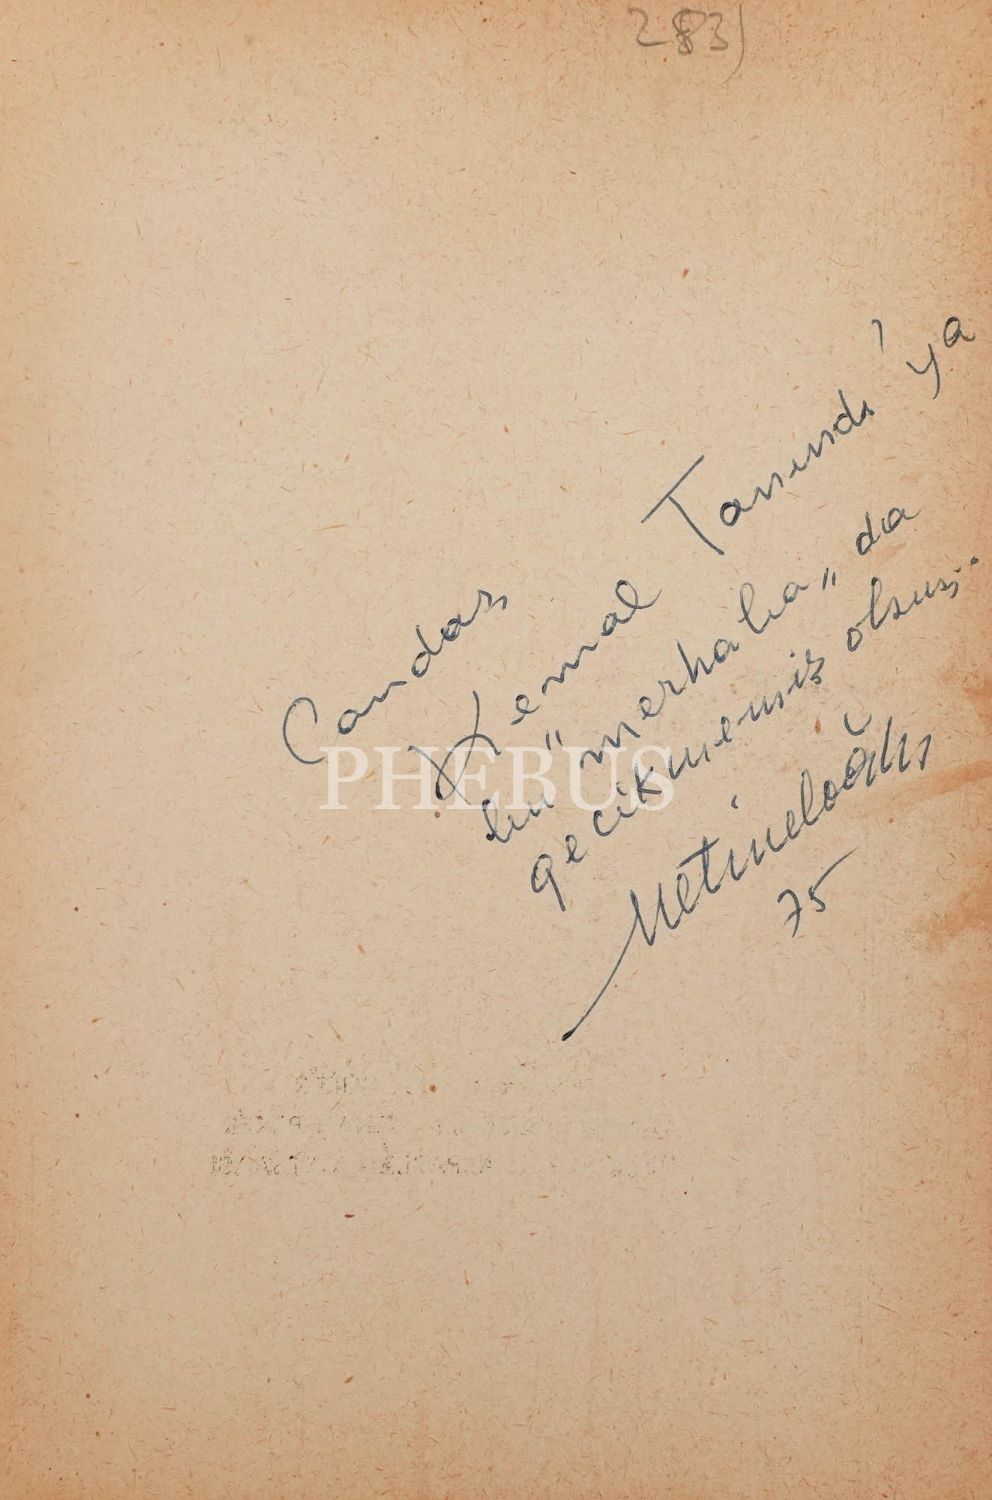 283)
Candan
Kemal Tanındı'ya
bu "merhaba" da
gecikmemiş olsun..
Metin Eloğlu
75
PHEBUS